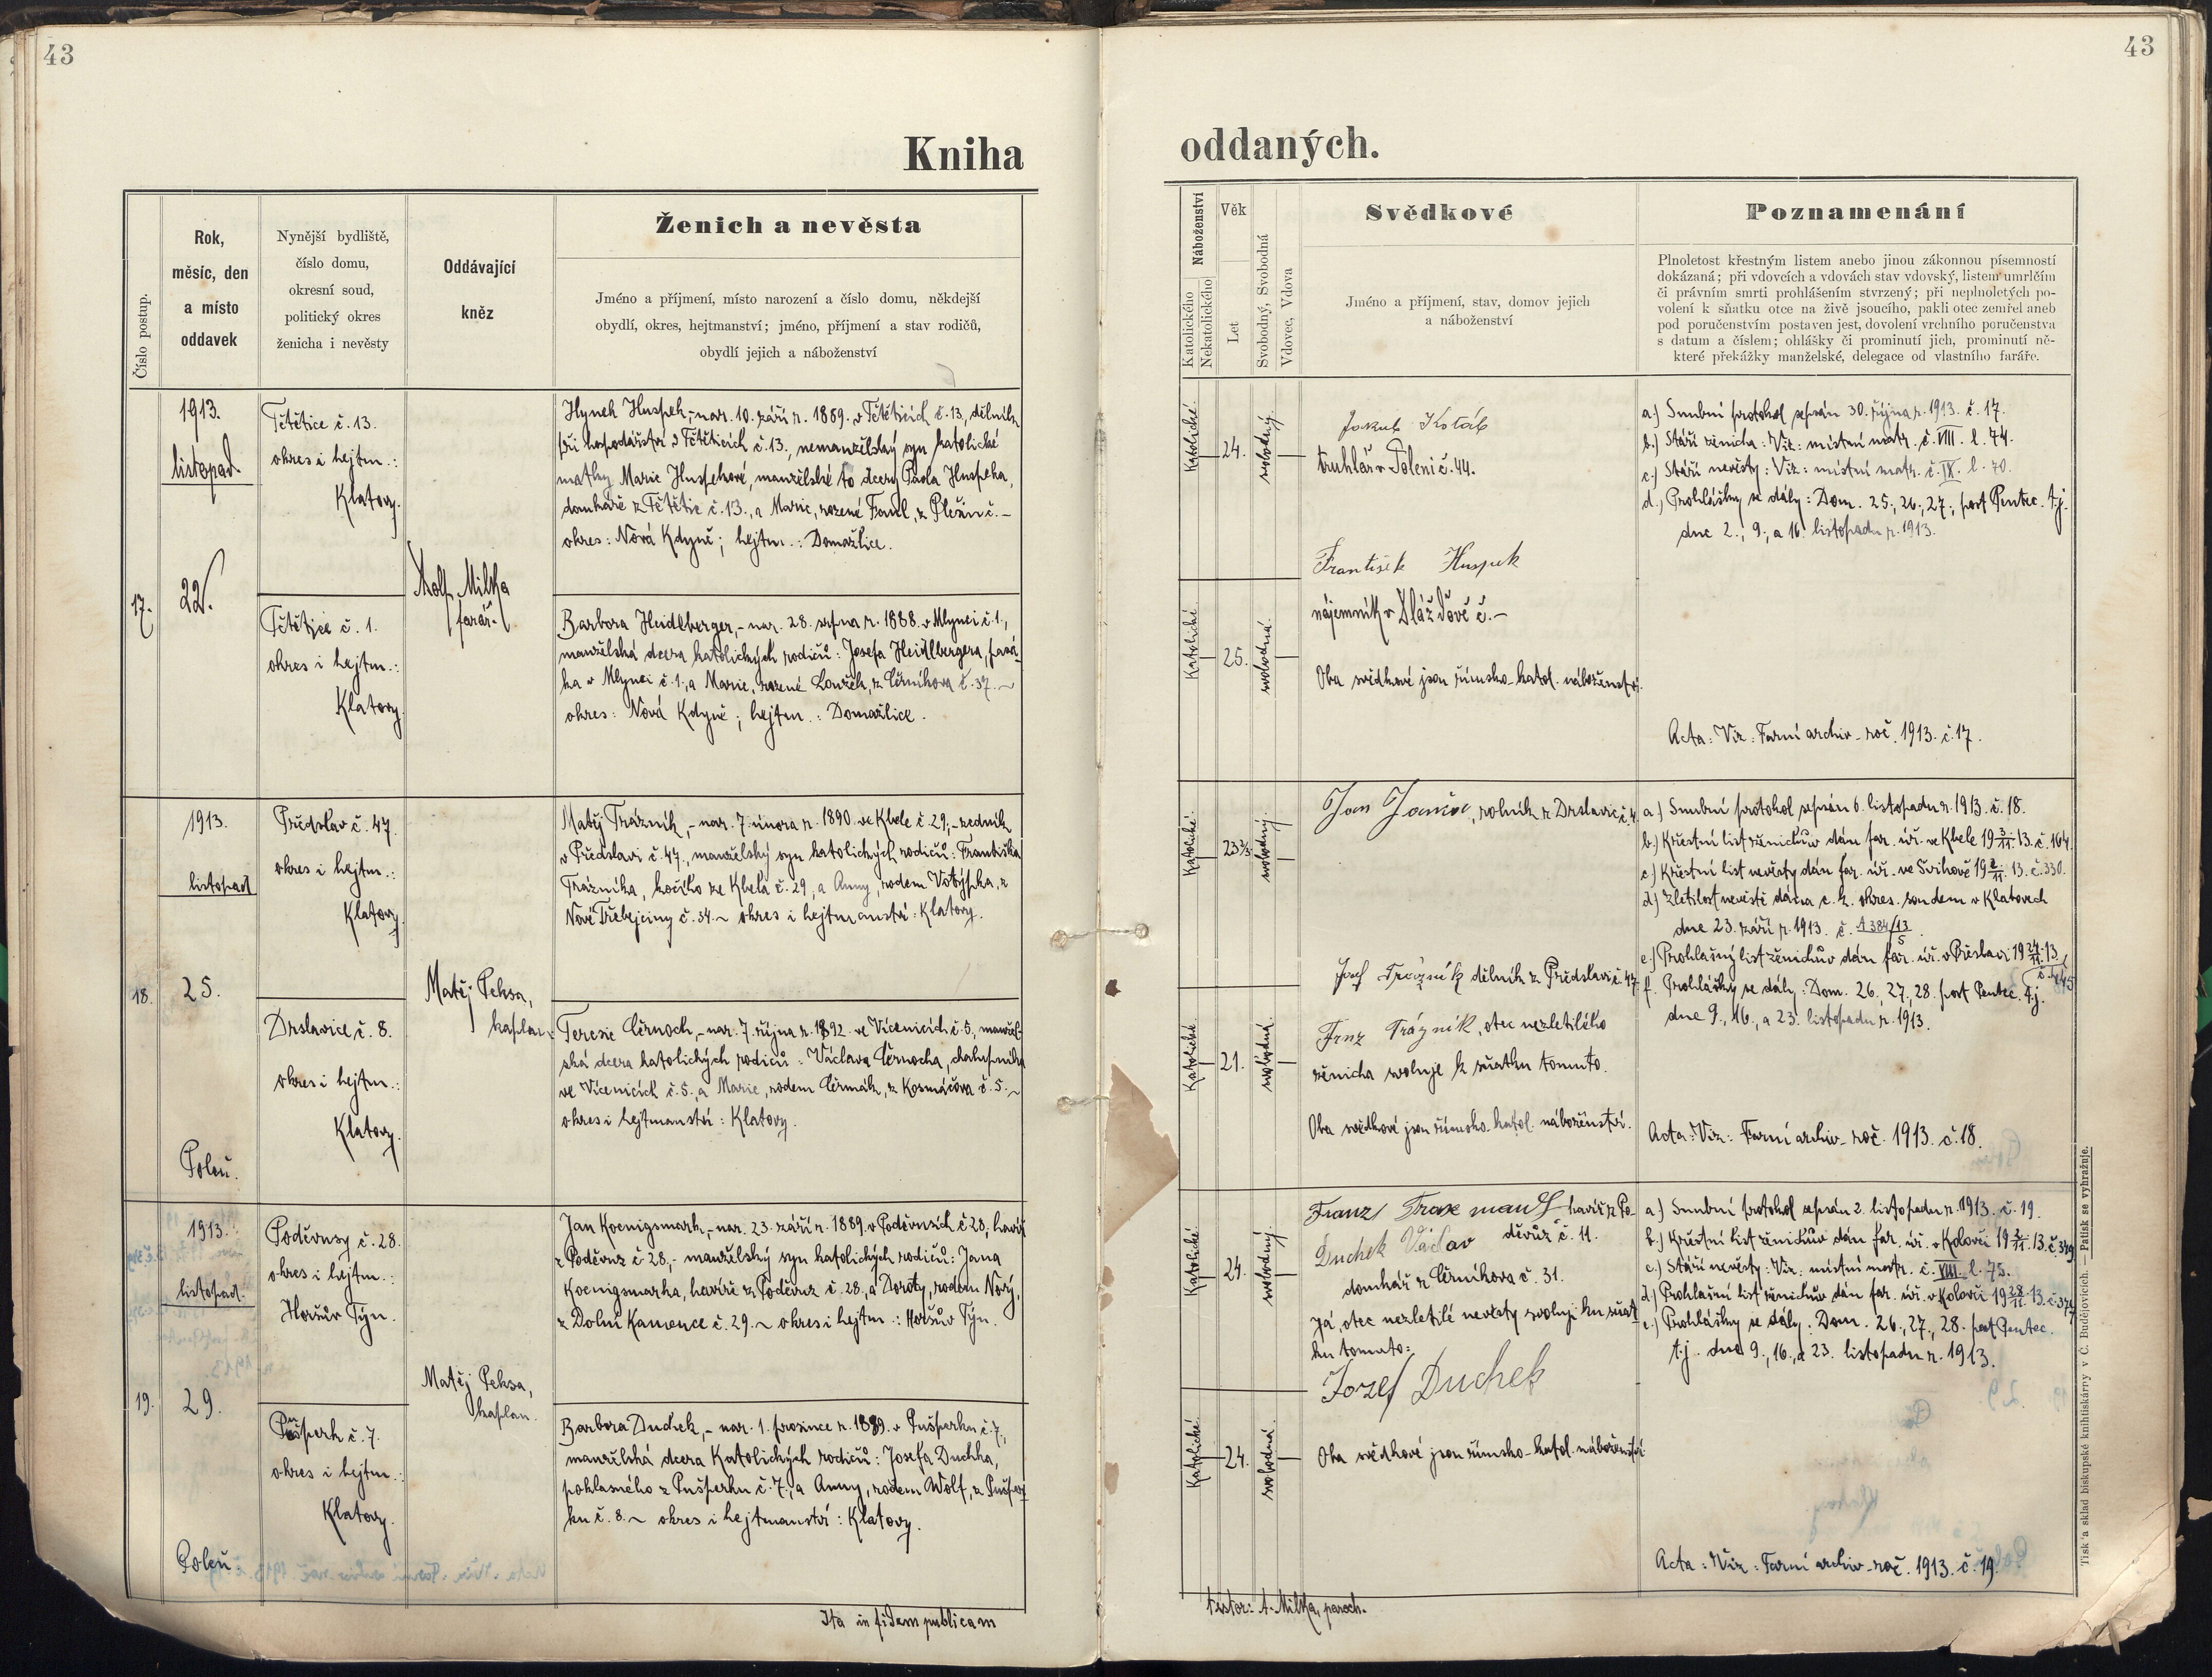 43
43
Kniha
oddaných.
Číslo postup.
Rok,
měsíc, den
a místo
oddavek
Nynější bydliště,
číslo domu,
okresní soud,
politický okres
ženicha i nevěsty
Oddávající
kněz
Ženich a nevěsta
Jméno a příjmení, místo narození a číslo domu, někdejší
obydlí, okres, hejtmanství; jméno, příjmení a stav rodičů,
obydlí jejich a náboženství
Náboženství
Katolického
Nekatolického
Věk
Let
Svobodný, Svobodná
Vdovec, Vdova
Svědkové
Jméno a příjmení, stav, domov jejich
a náboženství
Poznamenání
Plnoletost křestným listem anebo jinou zákonnou písemností
dokázaná; při vdovcích a vdovách stav vdovský, listem umrlčím
či právním smrti prohlášením stvrzený; při neplnoletých po-
volení k sňatku otce na živě jsoucího, pakli otec zemřel aneb
pod poručenstvím postaven jest, dovolení vrchního poručenstva
s datum a číslem; ohlášky či prominutí jich, prominutí ně-
které překážky manželské, delegace od vlastního faráře.
17.
1913.
listopad
22.
Tětětice č. 13.
okres i hejtm.:
Klatovy.
Tětětice č. 1.
okres i hejtm.:
Klatovy.
Adolf Milka
farář.
Hynek Huspek,- nar. 10. září r. 1889. v Tětěticích č. 13, dělník
při hospodářství v Tětěticích č. 13., nemanželský syn katolické
matky Marie Huspekové, manželské to dcery Pavla Huspeka,
domkáře z Tětětic č. 13., a Marie, rozené Faul, z Plešin č. –
okres: Nová Kdyně; hejtm.: Domažlice.
Barbora Heidlberger,- nar. 28. srpna r. 1888. v Mlynci č. 1.,
manželská dcera katolických rodičů: Josefa Heidlbergera, pasá-
ka v Mlynci č. 1., a Marie, rozené Loužek, z Černíkova č. 37. ~
okres: Nová Kdyně; hejtm.: Domažlice.
Katolické.
24.
svobodný.
Katolické.
25.
svobodná.
Jakub Koláb
truhlář v Poleni č. 44.
František Huspek
nájemník v Dlážďově č. –
Oba svědkové jsou římsko-katol. náboženství.
a.) Snubní protokol sepsán 30. října r. 1913. č. 17.
b.) Stáří ženicha: Viz: místní matr. č. VIII. l. 74.
c.) Stáří nevěsty: Viz: místní matr. č. IX. l. 70.
d.) Prohlášky se dály: Dom. 25., 26., 27., post Pentec. t.j.
dne 2., 9., a 16. listopadu r. 1913.
Acta: Viz: Farní archiv - roč. 1913. č. 17.
18.
1913.
listopad
25.
Poleň.
Předslav č. 47.
okres i hejtm.:
Klatovy.
Drslavice, č. 8.
okres i hejtm.:
Klatovy.
Matěj Peksa,
kaplan.
Matěj Trázník,- nar. 7. února r. 1890. ve Kbele č. 29,- zedník
v Předslavi č. 47., manželský syn katolických rodičů: Františka
Trázníka, kočího ze Kbela č. 29, a Anny, rodem Votýpka, z
Nové Třebejciny č. 34. ~ okres i hejtmanství: Klatovy.
Terezie Černoch,- nar. 7. října r. 1892. ve Vícenicích č. 5, manžel-
ská dcera katolických rodičů: Václava Černocha, chalupníka
ve Vícenicích č. 5., a Marie, rodem Čermák, z Kosmáčova č. 5. ~
okres i hejtmanství: Klatovy.
Katolické.
23 2/3.
svobodný.
Katolické.
21.
svobodná.
Jan Jančar, rolník z Drslavic č. 4.
Josef Trázník dělník z Předslavi č. 47
Franz Trázník, otec nezletilého
ženicha svoluje k sňatku tomuto.
Oba svědkové jsou římsko-katol. náboženství.
a.) Snubní protokol sepsán 6. listopadu r. 1913. č. 18.
b.) Křestní list ženichův dán far. úř. ve Kbele č. 164.
c.) Křestní list nevěsty dán far. úř. ve Švihově 13. č. 330.
d.) Zletilost nevěstě dána c. k. okres. soudem v Klatovech
dne 23. září r. 1913. č. A 384/13
5
e.) Prohlašný list ženichův dán far. úř. v Předslavi 19 24/11 13.
č. 445
f. Prohlášky se dály: Dom. 26., 27., 28. post Pentec. t.j.
dne 9., 16., a 23. listopadu r. 1913.
Acta: Viz: Farní archiv - roč. 1913. č. 18.
19.
1913.
listopad.
29.
Poleň
Poděvusy č. 28.
okres i hejtm.:
Horšův Týn.
Pušperk č. 7.
okres i hejtm.:
Klatovy.
Matěj Peksa,
kaplan.
Jan Koenigsmark,- nar. 23. září r. 1889. v Poděvusích č. 28, havíř
z Poděvus č. 28,- manželský syn katolických rodičů: Jana
Koenigsmarka, havíře z Poděvus č. 28., a Doroty, rodem Nový,
z Dolní Kamence č. 29. ~ okres i hejtm.: Horšův Týn.
Barbora Duchek,- nar. 1. prosince r. 1889. v Pušperku č. 7.,
manželská dcera katolických rodičů: Josefa Duchka,
pohlasného z Pušperku č. 7., a Anny, rodem Wolf, z Pušper-
ku č. 8. ~ okres i hejtmanství: Klatovy.
Katolické.
24.
svobodný.
Katolické.
24.
svobodná.
Franz havíř z Po-
děvůs č. 11.
Duchek Václav
domkář z Černíkova č. 31.
Já, otec nezletilé nevěsty svoluji ku sňat-
ku tomuto:
Jozef Duchek
Oba svědkové jsou římsko-katol. náboženství.
a.) Snubní protokol sepsán 2. listopadu r. 1913. č. 19.
b.) Křestní list ženichův dán far. úř. v Kolovči 13. č. 349
c.) Stáří nevěsty: Viz: místní matr. č. VIII. l. 75.
d.) Prohlašní list ženichův dán far. úř. v Kolovči 19 28/11 13. č. 374
e.) Prohlášky se dály: Dom. 26., 27., 28. post Pentec.
t.j. dne 9., 16., a 23. listopadu r. 1913.
Acta: Viz: Farní archiv - roč. 1913. č. 19.
Ita in fidem publicam
testor: A. Milka, paroch.
Tisk a sklad biskupské knihtiskárny v Č. Budějovicích. — Patisk se vyhražuje.